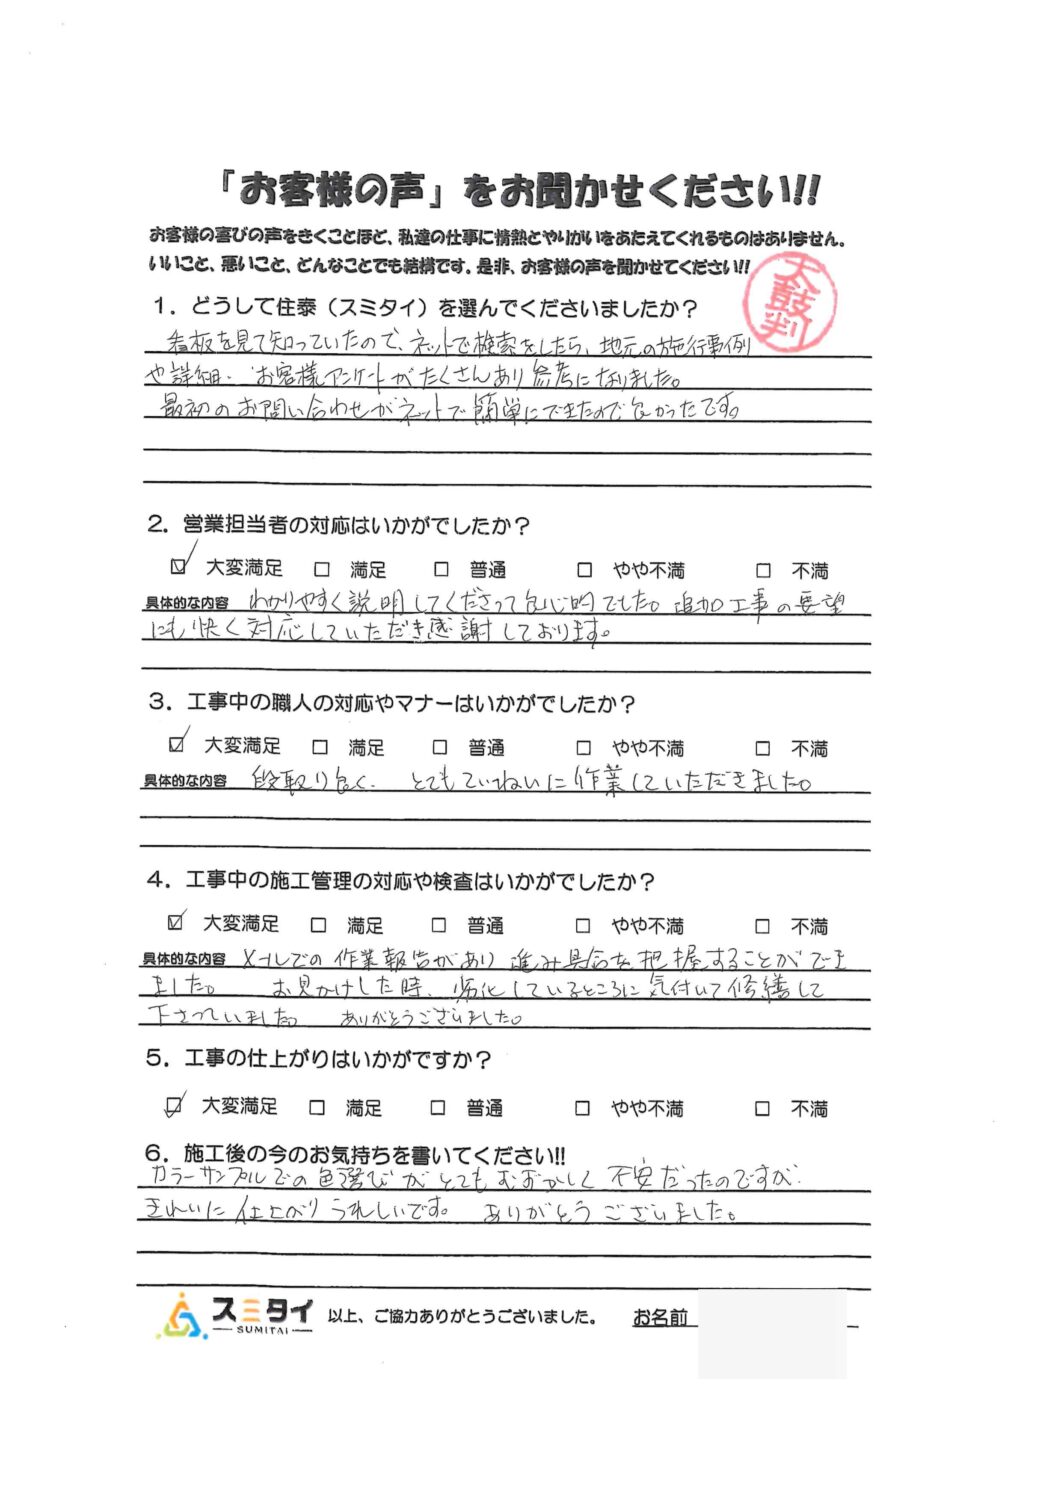 「お客様の声」をお聞かせください!!
お客様の喜びの声をきくことほど、私達の仕事に情熱とやりがいをあたえてくれるものはありません。
いいこと、悪いこと、どんなことでも結構です。是非、お客様の声を聞かせてください!!
太鼓判
1．どうして住泰（スミタイ）を選んでくださいましたか？
看板を見て知っていたので、ネットで検索をしたら、地元の施行事例
や詳細、お客様アンケートがたくさんあり参考になりました。
最初のお問い合わせがネットで簡単にできたので良かったです。
2．営業担当者の対応はいかがでしたか？
☑ 大変満足 □ 満足 □ 普通 □ やや不満 □ 不満
具体的な内容 わかりやすく説明してくださって良心的でした。追加工事の要望
にも快く対応していただき感謝しております。
3．工事中の職人の対応やマナーはいかがでしたか？
☑ 大変満足 □ 満足 □ 普通 □ やや不満 □ 不満
具体的な内容 段取り良く、とてもていねいに作業していただきました。
4．工事中の施工管理の対応や検査はいかがでしたか？
☑ 大変満足 □ 満足 □ 普通 □ やや不満 □ 不満
具体的な内容 メールでの作業報告があり進み具合を把握することができ
ました。 お見かけした時、劣化しているところに気付いて修繕して
下さっていました。 ありがとうございました。
5．工事の仕上がりはいかがですか？
☑ 大変満足 □ 満足 □ 普通 □ やや不満 □ 不満
6．施工後の今のお気持ちを書いてください!!
カラーサンプルでの色選びがとてもむずかしく不安だったのですが、
きれいに仕上がりうれしいです。 ありがとうございました。
スミタイ
SUMITAI
以上、ご協力ありがとうございました。 お名前